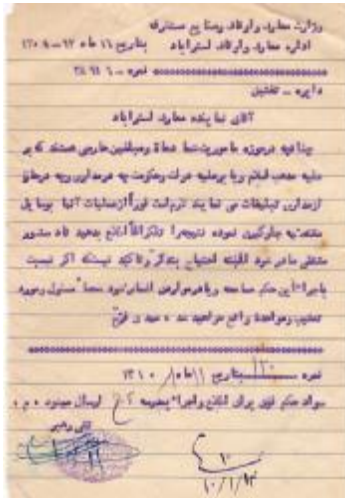 وزارت معارف و اوقاف و صنایع مستظرفه
اداره معارف و اوقاف استراباد بتاریخ ۱۶ ماه ۱۲-۱۳۰۹
نمره
دایره - تفتیش
آقای نماینده معارف استراباد
چنانچه در حوزه ماموریت شما دعاة و مبلغین خارجی هستند که بر
علیه مذهب اسلام و یا بر علیه دولت و حکومت چه در مدارس و چه در خارج
از مدارس تبلیغات می نمایند لازم است فوراً از عملیات آنها بوسایل
مقتضیه جلوگیری نموده نتیجه را تلگرافاً ابلاغ بدهید تا دستور
مقتضی صادر شود البته احتیاج بتذکر و تاکید نیست که اگر نسبت
باجراء این حکم مسامحه و یا در موارد آن اهمال شود جداً مسئول و مورد
تعقیب و مواخذه واقع خواهید شد
نمره ۱۲۰ بتاریخ ۱۱ ماه ۱ ۱۳۱۰
سواد حکم فوق برای ابلاغ و اجراء بمدرسه ارسال میشود
تقی رهبر
۱۰/۱/۱۲